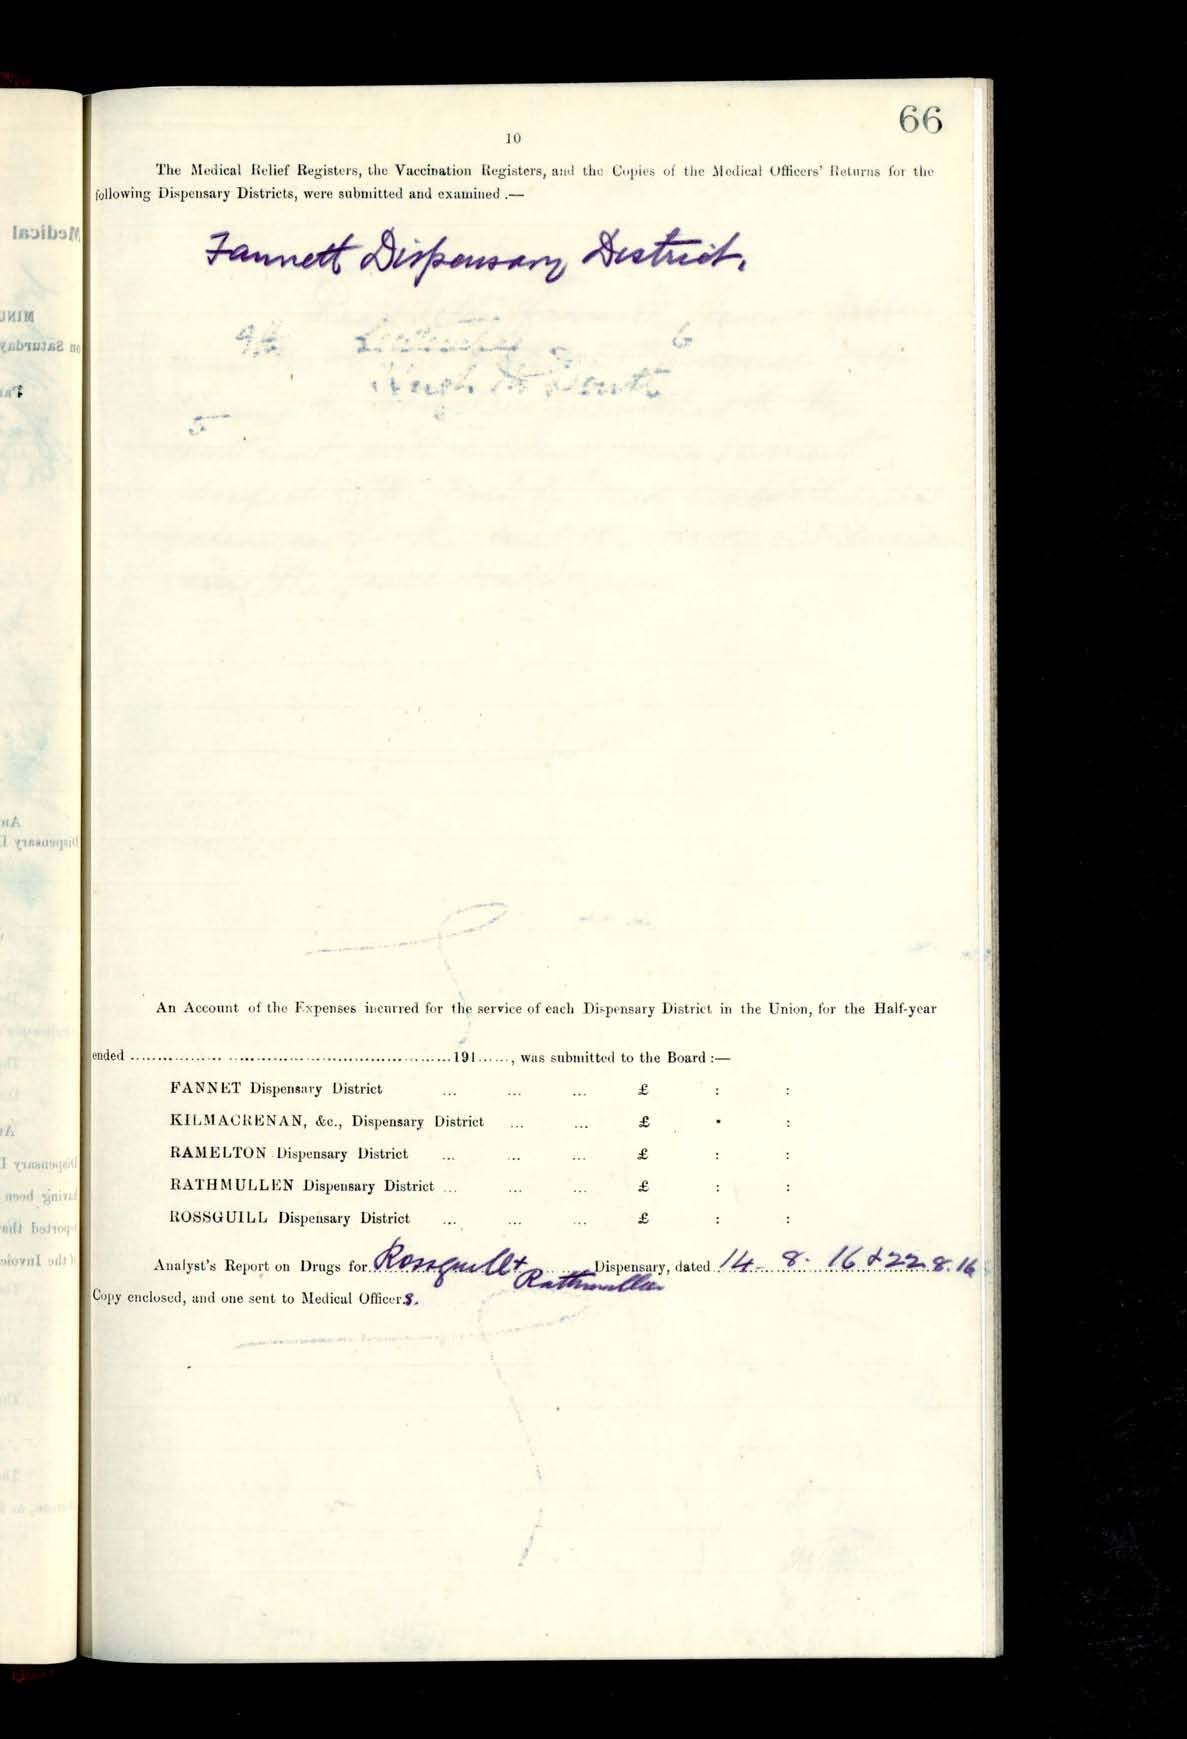 66
10
The Medical Relief Registers, the Vaccination Registers, and the Copies of the Medical Officers' Returns for the
following Dispensary Districts, were submitted and examined .—
Fannett Dispensary District.
An Account of the Expenses incurred for the service of each Dispensary District in the Union, for the Half-year
ended ........................................................191......, was submitted to the Board :—
FANNET Dispensary District ... ... ... £ : :
KILMACRENAN, &c., Dispensary District ... ... £ : :
RAMELTON Dispensary District ... ... ... £ : :
RATHMULLEN Dispensary District ... ... ... £ : :
ROSSGUILL Dispensary District ... ... ... £ : :
Analyst's Report on Drugs for Rossguill & Rathmullan Dispensary, dated 14 - 8 - 16 & 22.8.16
Copy enclosed, and one sent to Medical Officers.